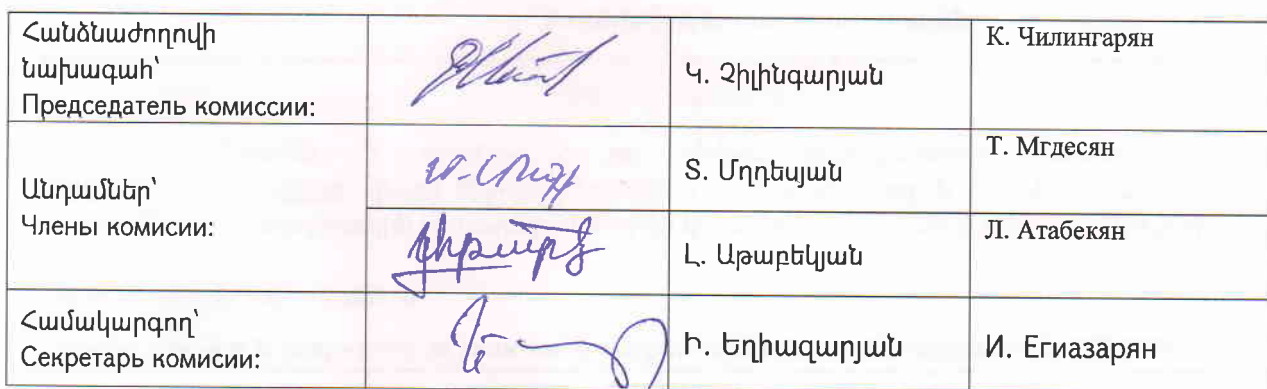 Հանձնաժողովի
նախագահ՝
Председатель комиссии:
Կ. Չիլինգարյան
К. Чилингарян
Անդամներ՝
Члены комисии:
Տ. Մղդեսյան
Т. Мгдесян
Լ. Աթաբեկյան
Л. Атабекян
Համակարգող՝
Секретарь комисии:
Ի. Եղիազարյան
И. Егиазарян